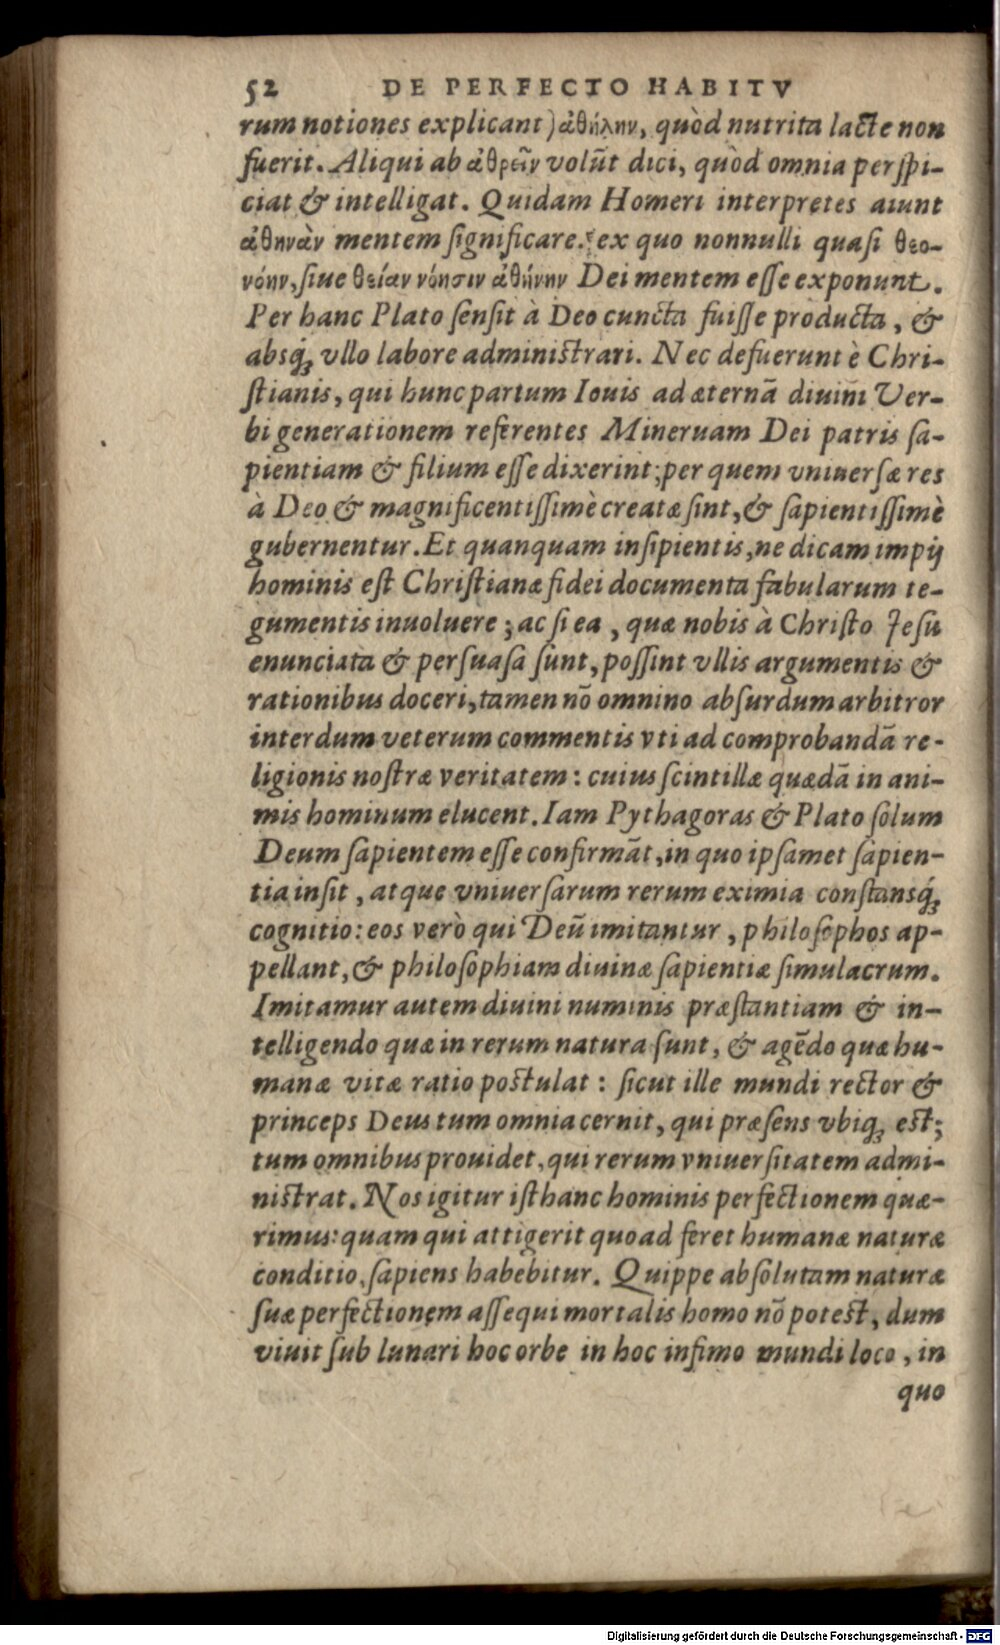 52 DE PERFECTO HABITV
rum notiones explicant) ἀθήλην, quòd nutrita lacte non
fuerit. Aliqui ab ἀθρεῖν volūt dici, quòd omnia perspi-
ciat & intelligat. Quidam Homeri interpretes aiunt
ἀθηνὰν mentem significare: ex quo nonnulli quasi θεο-
νόην, siue θείαν νόησιν ἀθήνην Dei mentem esse exponunt.
Per hanc Plato sensit à Deo cuncta fuisse producta, &
absq́ꝫ vllo labore administrari. Nec defuerunt è Chri-
stianis, qui hunc partum Iouis ad æternā diuini Ver-
bi generationem referentes Mineruam Dei patris sa-
pientiam & filium esse dixerint; per quem vniuersæ res
à Deo & magnificentissimè creatæ sint, & sapientissimè
gubernentur. Et quanquam insipientis, ne dicam impij
hominis est Christianæ fidei documenta fabularum te-
gumentis inuoluere; ac si ea, quæ nobis à Christo Jesu
enunciata & persuasa sunt, possint vllis argumentis &
rationibus doceri, tamen nō omnino absurdum arbitror
interdum veterum commentis vti ad comprobandā re-
ligionis nostræ veritatem: cuius scintillæ quædā in ani-
mis hominum elucent. Iam Pythagoras & Plato solum
Deum sapientem esse confirmāt, in quo ipsamet sapien-
tia insit, atque vniuersarum rerum eximia constansq́ꝫ
cognitio: eos verò qui Deū imitantur, philosophos ap-
pellant, & philosophiam diuinæ sapientiæ simulacrum.
Imitamur autem diuini numinis præstantiam & in-
telligendo quæ in rerum natura sunt, & agēdo quæ hu-
manæ vitæ ratio postulat: sicut ille mundi rector &
princeps Deus tum omnia cernit, qui præsens vbiqꝫ est;
tum omnibus prouidet, qui rerum vniuersitatem admi-
nistrat. Nos igitur isthanc hominis perfectionem quæ-
rimus: quam qui attigerit quoad feret humanæ naturæ
conditio, sapiens habebitur. Quippe absolutam naturæ
suæ perfectionem assequi mortalis homo nō potest, dum
viuit sub lunari hoc orbe in hoc infimo mundi loco, in
quo
Digitalisierung gefördert durch die Deutsche Forschungsgemeinschaft - DFG